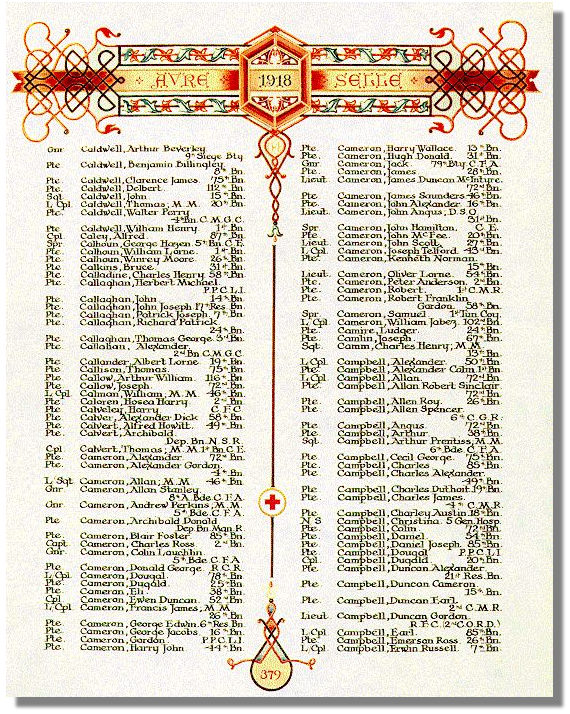 AVRE 1918 SELLE
Gnr Caldwell, Arthur Beverley
9th Siege Bty
Pte. Caldwell, Benjamin Billingley
8th Bn.
Pte Caldwell, Clarence James. 75th Bn.
Pte. Caldwell, Delbert. 112th Bn.
Sgt. Caldwell, John 15th Bn.
L Cpl Caldwell, Thomas; M. M. 20th Bn.
Pte. Caldwell, Walter Perry
4th Bn. C. M. G. C.
Pte Caldwell, William Henry. 1st Bn.
Cpl. Caley, Alfred 87th Bn.
Spr. Calhoun, George Hazen. 5th Bn. C. E.
Pte. Calhoun, William Lorne. 1st Bn.
Pte. Calhoun, Winrey Moore. 26th Bn.
Pte. Calkins, Bruce. 31st Bn.
Pte. Calladine, Charles Henry 58th Bn.
Pte. Callaghan, Herbert Michael
P. P. C. L. I.
Pte. Callaghan, John 14th Bn.
Pte. Callaghan, John Joseph. 17th Res. Bn.
Pte. Callaghan, Patrick Joseph. 7th Bn.
Pte. Callaghan, Richard Patrick.
24th Bn.
Pte. Callaghan, Thomas George. 3rd Bn.
Pte. Callahan, Alexander
2nd Bn. C. M. G. C.
Pte. Callander, Albert Lorne 19th Bn.
Pte. Callison, Thomas. 75th Bn.
Pte. Callow, Arthur William. 116th Bn.
Pte. Callow, Joseph. 72nd Bn.
L Cpl Calman, William; M. M. 46th Bn.
Pte. Caloren, Hosea Harry 2nd Bn.
Pte. Calveley, Harry C. F. C.
Pte. Calver, Alexander Dick 58th Bn.
Pte. Calvert, Alfred Howitt. 49th Bn.
Pte. Calvert, Archibald
Dep. Bn. N. S. R.
Cpl. Calvert, Thomas; M. M. 1st Bn. C. E.
Pte. Cameron, Alexander. 72nd Bn.
Pte. Cameron, Alexander Gordon.
4th Bn.
L Sgt. Cameron, Allan; M. M. 46th Bn.
Gnr Cameron, Allan Stanley.
8th A. Bde. C. F. A.
Gnr. Cameron, Andrew Perkins; M. M.
5th Bde. C. F. A.
Pte Cameron, Archibald Donald
Dep. Bn. Man. R.
Pte. Cameron, Blair Foster. 85th Bn.
Capt. Cameron, Charles Ross 2nd Bn.
Gnr. Cameron, Colin Lauchlin
5th Bde. C. F. A.
Pte. Cameron, Donald George. R. C. R.
L Cpl Cameron, Dougal. 78th Bn.
Pte Cameron, Dugald. 25th Bn.
Pte. Cameron, Eli 38th Bn.
Cpl. Cameron, Ewen Duncan. 52nd Bn.
L Cpl Cameron, Francis James; M. M.
26th Bn.
Pte. Cameron, George Edwin. 6th Res. Bn.
Pte. Cameron, George Jacobs. 16th Bn.
Pte. Cameron, Gordon P. P. C. L. I.
Pte. Cameron, Harry John 44th Bn.
Pte. Cameron, Harry Wallace. 13th Bn.
Pte. Cameron, Hugh Donald. 31st Bn.
Gnr Cameron, Jack. 79th Bty. C. F. A.
Pte. Cameron, James. 28th Bn.
Lieut. Cameron, James Duncan McIntyre.
72nd Bn.
Pte Cameron, James Saunders 46th Bn.
Pte. Cameron, John Alexander. 16th Bn.
Lieut. Cameron, John Angus; D. S. O
31st Bn.
Spr. Cameron, John Hamilton. C. E.
Pte Cameron, John McFee. 20th Bn.
Lieut. Cameron, John Scott. 27th Bn.
L Cpl. Cameron, Joseph Telford. 43rd Bn.
Pte. Cameron, Kenneth Norman.
15th Bn.
Lieut. Cameron, Oliver Lorne. 54th Bn.
Pte. Cameron, Peter Anderson. 2nd Bn.
Pte. Cameron, Robert. 1st C. M. R.
Pte Cameron, Robert Franklin
Gordon. 58th Bn.
Spr. Cameron, Samuel 1st Tun. Coy.
L Cpl. Cameron, William Jabez. 102nd Bn.
Pte. Camire, Ludger. 24th Bn.
Pte. Camlin, Joseph. 67th Bn.
Sgt. Camm, Charles Henry; M. M.
13th Bn.
L Cpl. Campbell, Alexander. 50th Bn.
Pte. Campbell, Alexander Calm. 1st Bn.
L Cpl Campbell, Allan. 72nd Bn.
Pte. Campbell, Allan Robert Sinclair.
72nd Bn.
Pte. Campbell, Allen Roy. 26th Bn.
Pte Campbell, Allen Spencer.
6th C. G. R.
Pte. Campbell, Angus. 72nd Bn.
Pte. Campbell, Arthur 38th Bn.
Sgt Campbell, Arthur Prentiss; M. M.
6th Bde. C. F. A.
Pte. Campbell, Cecil George. 75th Bn.
Pte. Campbell, Charles 85th Bn.
Pte. Campbell, Charles Alexander.
49th Bn.
Pte. Campbell, Charles Duthoit. 19th Bn.
Pte. Campbell, Charles James.
4th C. M. R.
Pte. Campbell, Charley Austin. 18th Bn.
N S Campbell, Christina. 5 Gen. Hosp.
Pte. Campbell, Colin. 72nd Bn.
Pte. Campbell, Daniel 54th Bn.
Pte. Campbell, Daniel Joseph. 85th Bn.
Pte. Campbell, Dougal P. P. C. L. I
Cpl. Campbell, Dugald. 20th Bn.
Pte. Campbell, Duncan Alexander
21st Res. Bn.
Pte Campbell, Duncan Cameron
15th Bn.
Pte Campbell, Duncan Earl.
2nd C. M. R.
Lieut. Campbell, Duncan Gordon.
R. F. C. (2nd C. O. R. D.)
L Cpl Campbell, Earl. 85th Bn.
Pte. Campbell, Emerson Ross. 26th Bn.
L Cpl. Campbell, Erwin Russell. 7th Bn.
379